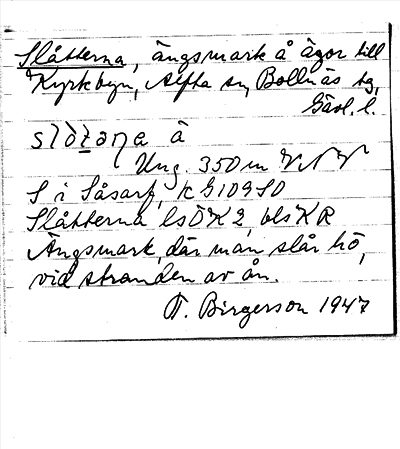 Slåtterna, ängsmark å ägor till
Kyrkbyn, Alfta sn, Bollnäs tg,
Gävl. l.
slòṭəṇa å
Ung. 350 m VNV
S i Såsarf, k G109SO
Slåtterna lsÖK2, bls KR
Ängsmark, där man slår hö,
vid stranden av ån.
T. Birgerson 1947